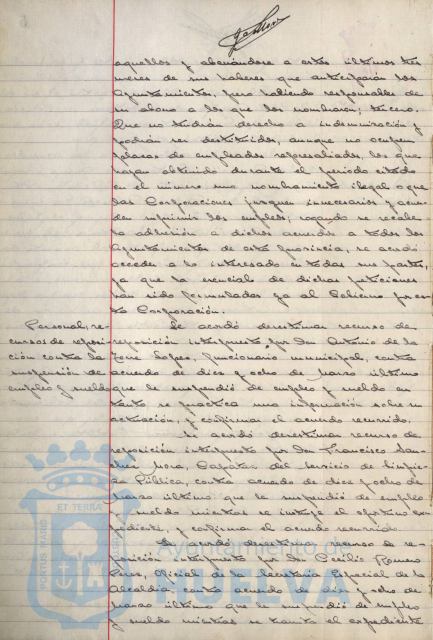 aquellos y abonándose a estos últimos tres
meses de sus haberes que anticiparán los
Ayuntamientos, pero habiendo responsables de
su abono a los que los nombraron; tercero.
Que no tendrán derecho a indemnización y
podrán ser destituidos, aunque no ocupen
plazas de empleados represaliados, los que
hayan obtenido durante el periodo citado
en el número uno nombramiento ilegal o que
las Corporaciones juzguen innecesarios y acuer
den suprimir los empleos; rogando se recabe
la adhesión a dichos acuerdos a todos los
Ayuntamientos de esta provincia, se acordó
acceder a lo interesado en todas sus partes,
ya que lo esencial de dichas peticiones
han sido formuladas ya al Gobierno por es-
ta Corporación.
Personal, re-
cursos de reposi-
ción contra la
suspensión de
empleo y sueldo
Se acordó desestimar recurso de
reposición interpuesto por Don Antonio de la
Torre López, funcionario municipal, contra
acuerdo de diez y ocho de marzo último
que le suspendió de empleo y sueldo en
tanto se practica una información sobre su
actuación, y confirmar el acuerdo recurrido.
Se acordó desestimar recurso de
reposición interpuesto por Don Francisco Sán-
chez Mora, Capataz del Servicio de limpieza
Pública, contra acuerdo de diez y ocho de
marzo último que le suspendió de empleo
y sueldo mientras se instruye el oportuno ex-
pediente, y confirmar el acuerdo recurrido.
Se acordó desestimar recurso de re-
posición interpuesto por Don Cecilio Romero
Oficial de la Secretaría Especial de la
Alcaldía, contra acuerdo de diez y ocho de
marzo último que le suspendió de empleo
y sueldo mientras se tramita el expediente
PORTUS MARIS
ET TERRAE
Ayuntamiento de
HUELVA